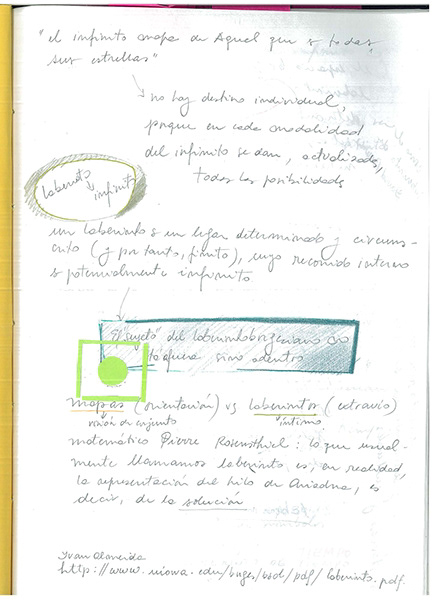 "el infinito mapa de Aquel que es todas
sus estrellas"
no hay destino individual,
porque en cada modalidad
del infinito se dan, actualizadas,
todas las posibilidades
laberinto
infinito
un laberinto es un lugar determinado y circuns-
crito (y por tanto, finito), cuyo recorrido interno
es potencialmente infinito
El sujeto del laberinto borgeano no
lo quiere sino adentro
mapas (orientación) vs laberintos (extravío)
visión de conjunto
íntimo
matemático Pierre Rosenstiehl: lo que usual-
mente llamamos laberinto es, en realidad,
la representación del hilo de Ariadna, es
decir, de la solución
Ivan Almeida
http://www.uiowa.edu/borges/bsol/pdf/laberinto.pdf